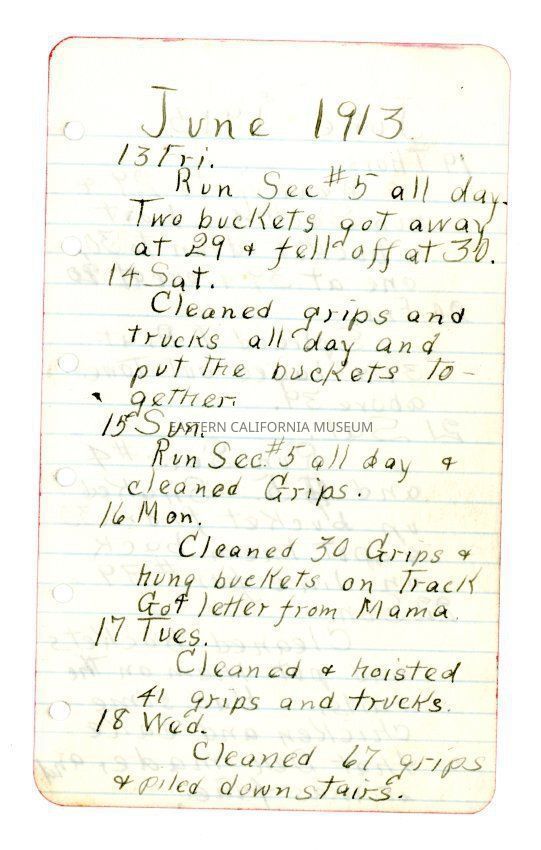 June 1913
13 Fri.
Run Sec #5 all day.
Two buckets got away
at 29 & fell off at 30.
14 Sat.
Cleaned grips and
trucks all day and
put the buckets to-
gether.
15 Sun.
EASTERN CALIFORNIA MUSEUM
Run Sec. #5 all day &
cleaned Grips.
16 Mon.
Cleaned 30 Grips &
hung buckets on Track
Got letter from Mama.
17 Tues.
Cleaned & hoisted
41 grips and trucks.
18 Wed.
Cleaned 67 grips
& piled downstairs.